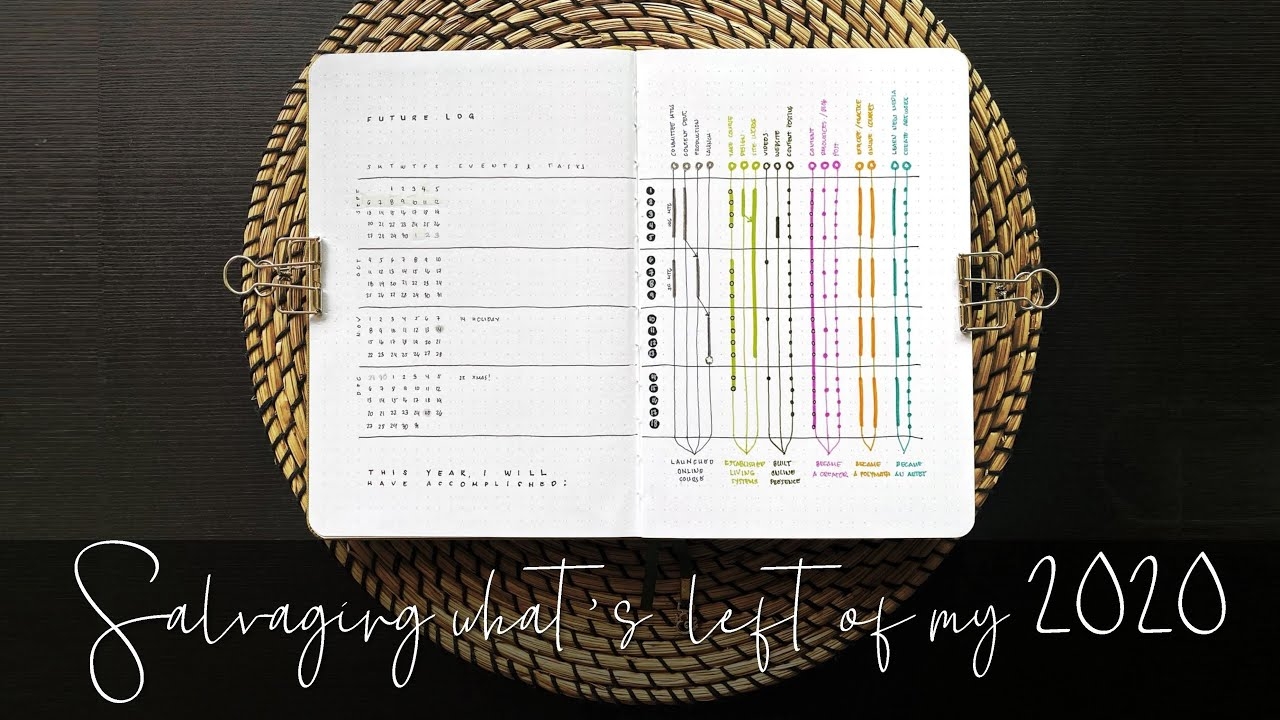 FUTURE LOG
S M T W T F S EVENTS & TASKS
SEPT
1 2 3 4 5
6 7 8 9 10 11 12
13 14 15 16 17 18 19
20 21 22 23 24 25 26
27 28 29 30 1 2 3
OCT
4 5 6 7 8 9 10
11 12 13 14 15 16 17
18 19 20 21 22 23 24
25 26 27 28 29 30 31
NOV
1 2 3 4 5 6 7 14 HOLIDAY
8 9 10 11 12 13 14
15 16 17 18 19 20 21
22 23 24 25 26 27 28
DEC
29 30 1 2 3 4 5 25 XMAS!
6 7 8 9 10 11 12
13 14 15 16 17 18 19
20 21 22 23 24 25 26
27 28 29 30 31
THIS YEAR, I WILL
HAVE ACCOMPLISHED:
COMMITTEE MTGS
CONTENT DEVT.
PRODUCTION
LAUNCH
TAKE COURSE
DESIGN
VIDEOS
WEBSITE
CONTENT POSTING
CONTENT
POST
ONLINE COURSES
LEARN NEW MEDIA
CREATE ARTWORK
1
2
3
4
5
6
7
8
9
10
11
12
13
14
15
16
17
18
LAUNCHED
ONLINE
COURSE
ESTABLISHED
LIVING
SYSTEMS
BUILT
ONLINE
PRESENCE
BECAME
A CREATOR
BECAME
A POLYMATH
BECAME
AN ARTIST
Salvaging what's left of my 2020